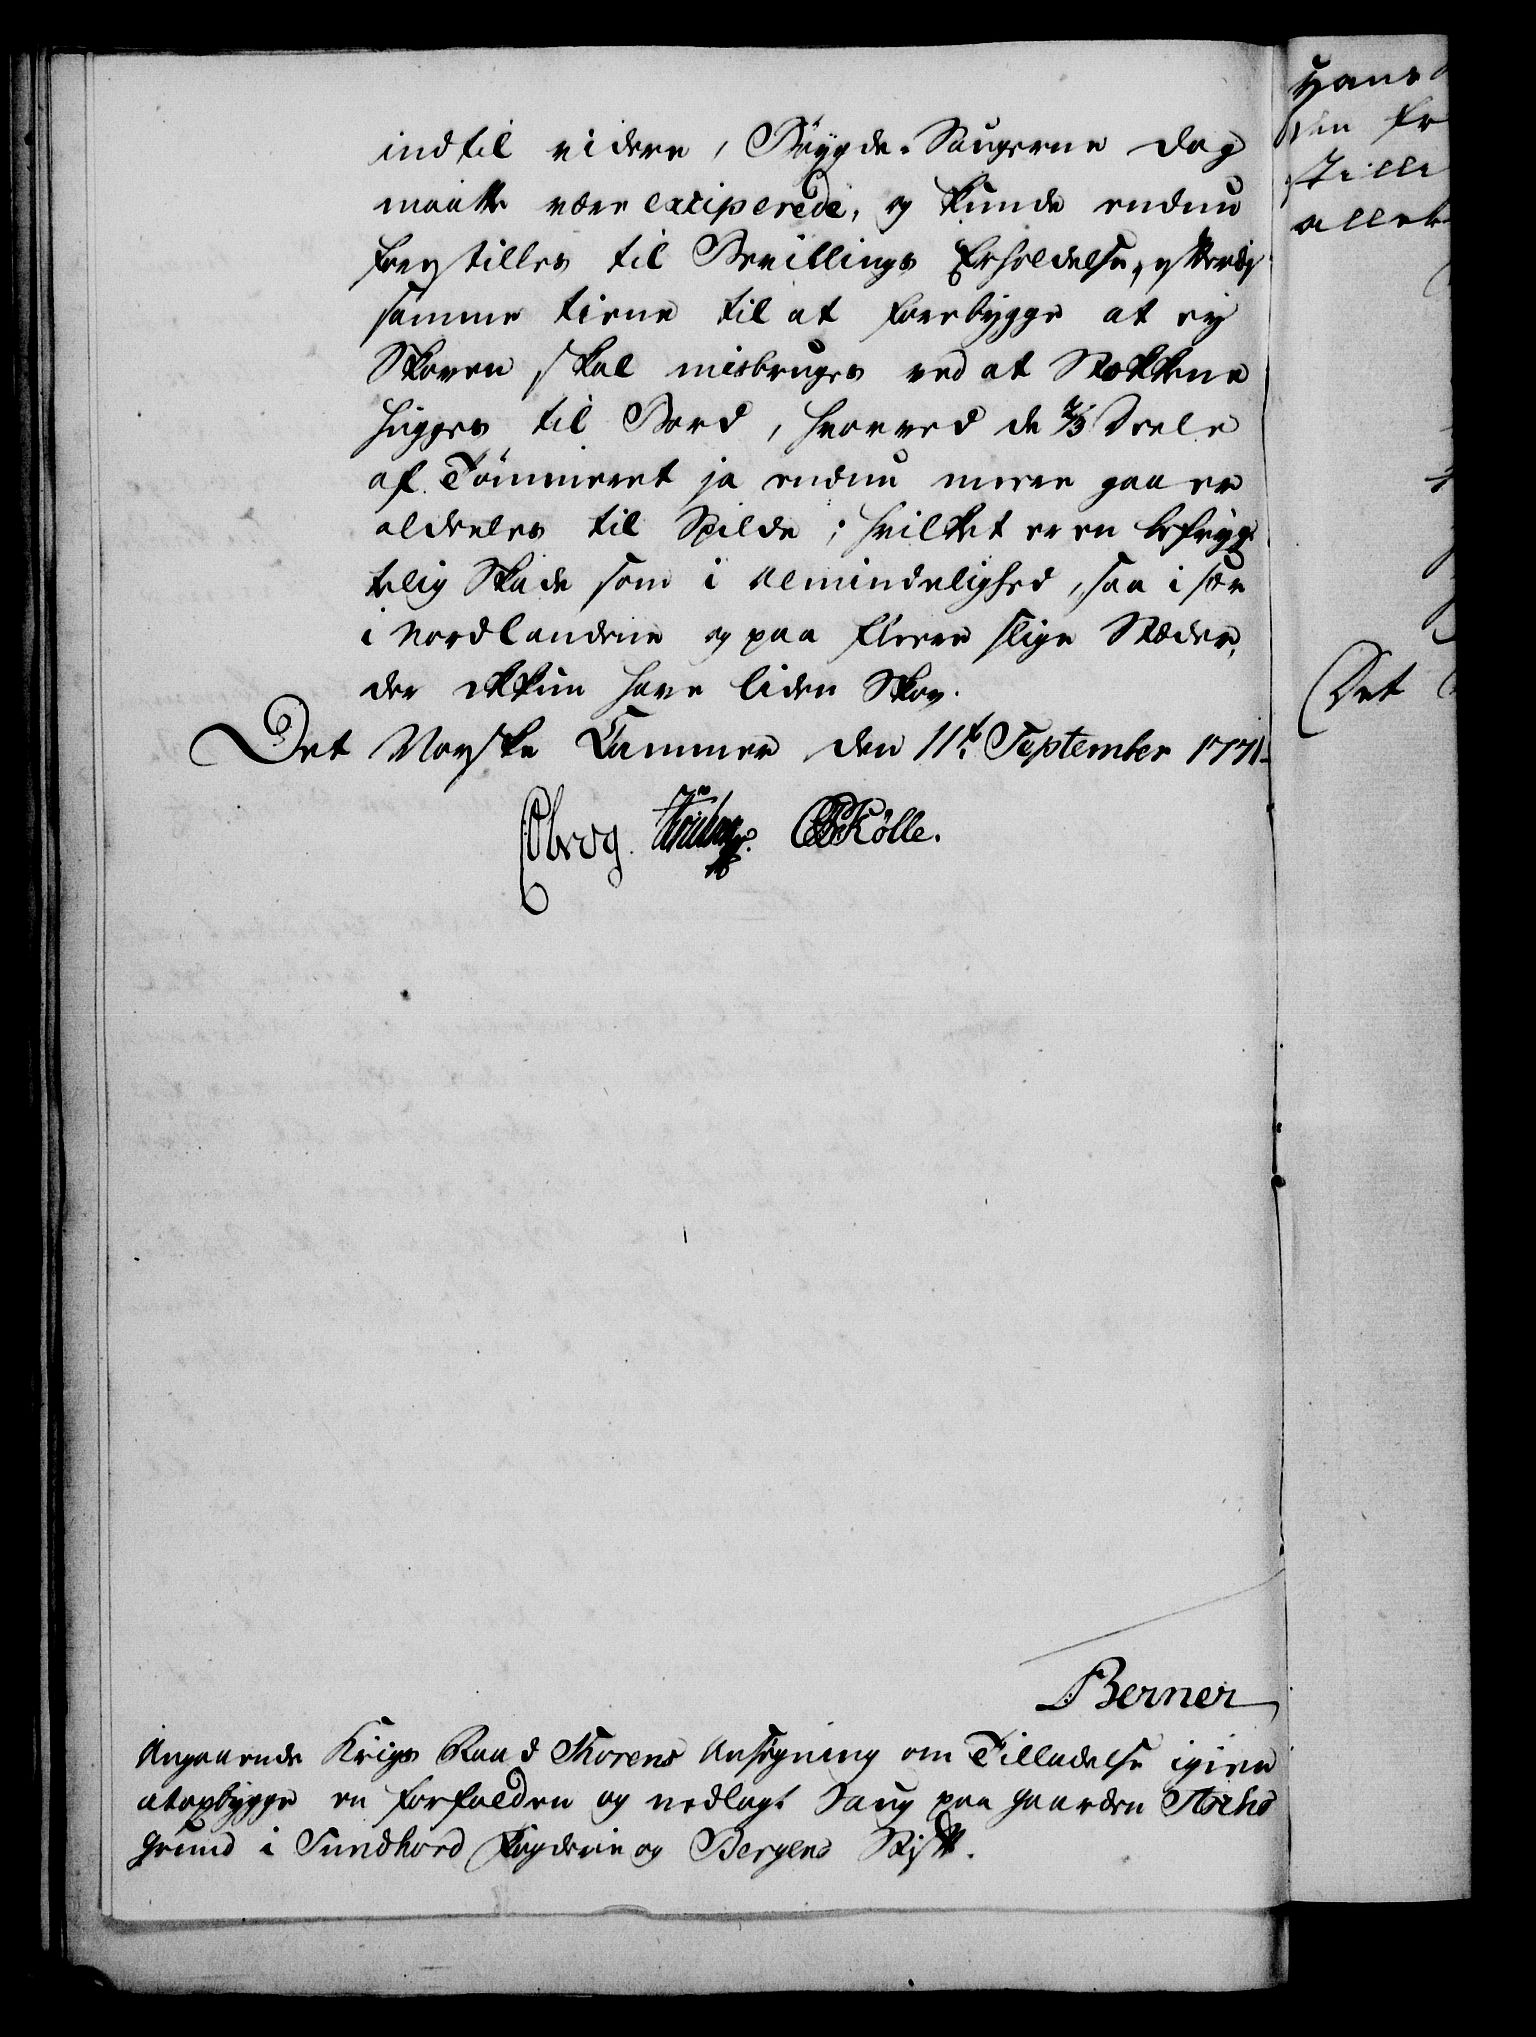 indtil videre, Bøygde-Saugerne dog
maatte være exciperede, og kunde endnu
freystilles til Bevillings Erholdelse,
samme tiene til at forebygge at ey
Skoven skal misbruges ved at Stokkene
hugges til Bord, hvorved de 2/3 Deele
af Tømmeret ja endnu meere gaaer
aldeeles til Spilde; hvilket er en befrygt
telig Skade som i Almindelighed, saa i sær
i Nordlandene og paa fleere slige Stæder,
der ikkun have liden Skov.
Det Norske Cammer den 11te September 1771.
CPKølle.
Berner
Angaaende Krigs Raad Thorens Ansøgning om Tilladelse igien
at opbygge en forfalden og nedlagt Saug paa Gaarden
Grund i Sundhord Fogderie og Bergens Stift.
Hans
den
stilli
allet
Det